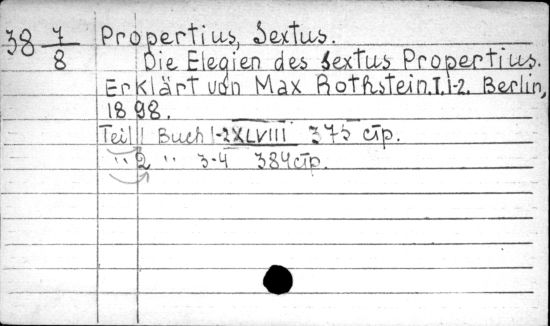 38 7/8 Propertius, Sextus.
Die Elegien des Sextus Propertius.
Erklärt von Max Rothstein. T. 1-2. Berlin,
1898.
Teil 1 Buch 1-2 XLVIII 375 стр.
" 2 " 3-4 384 стр.